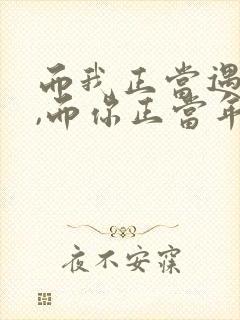 而我正當遇
,而你正當年
夜不安寐